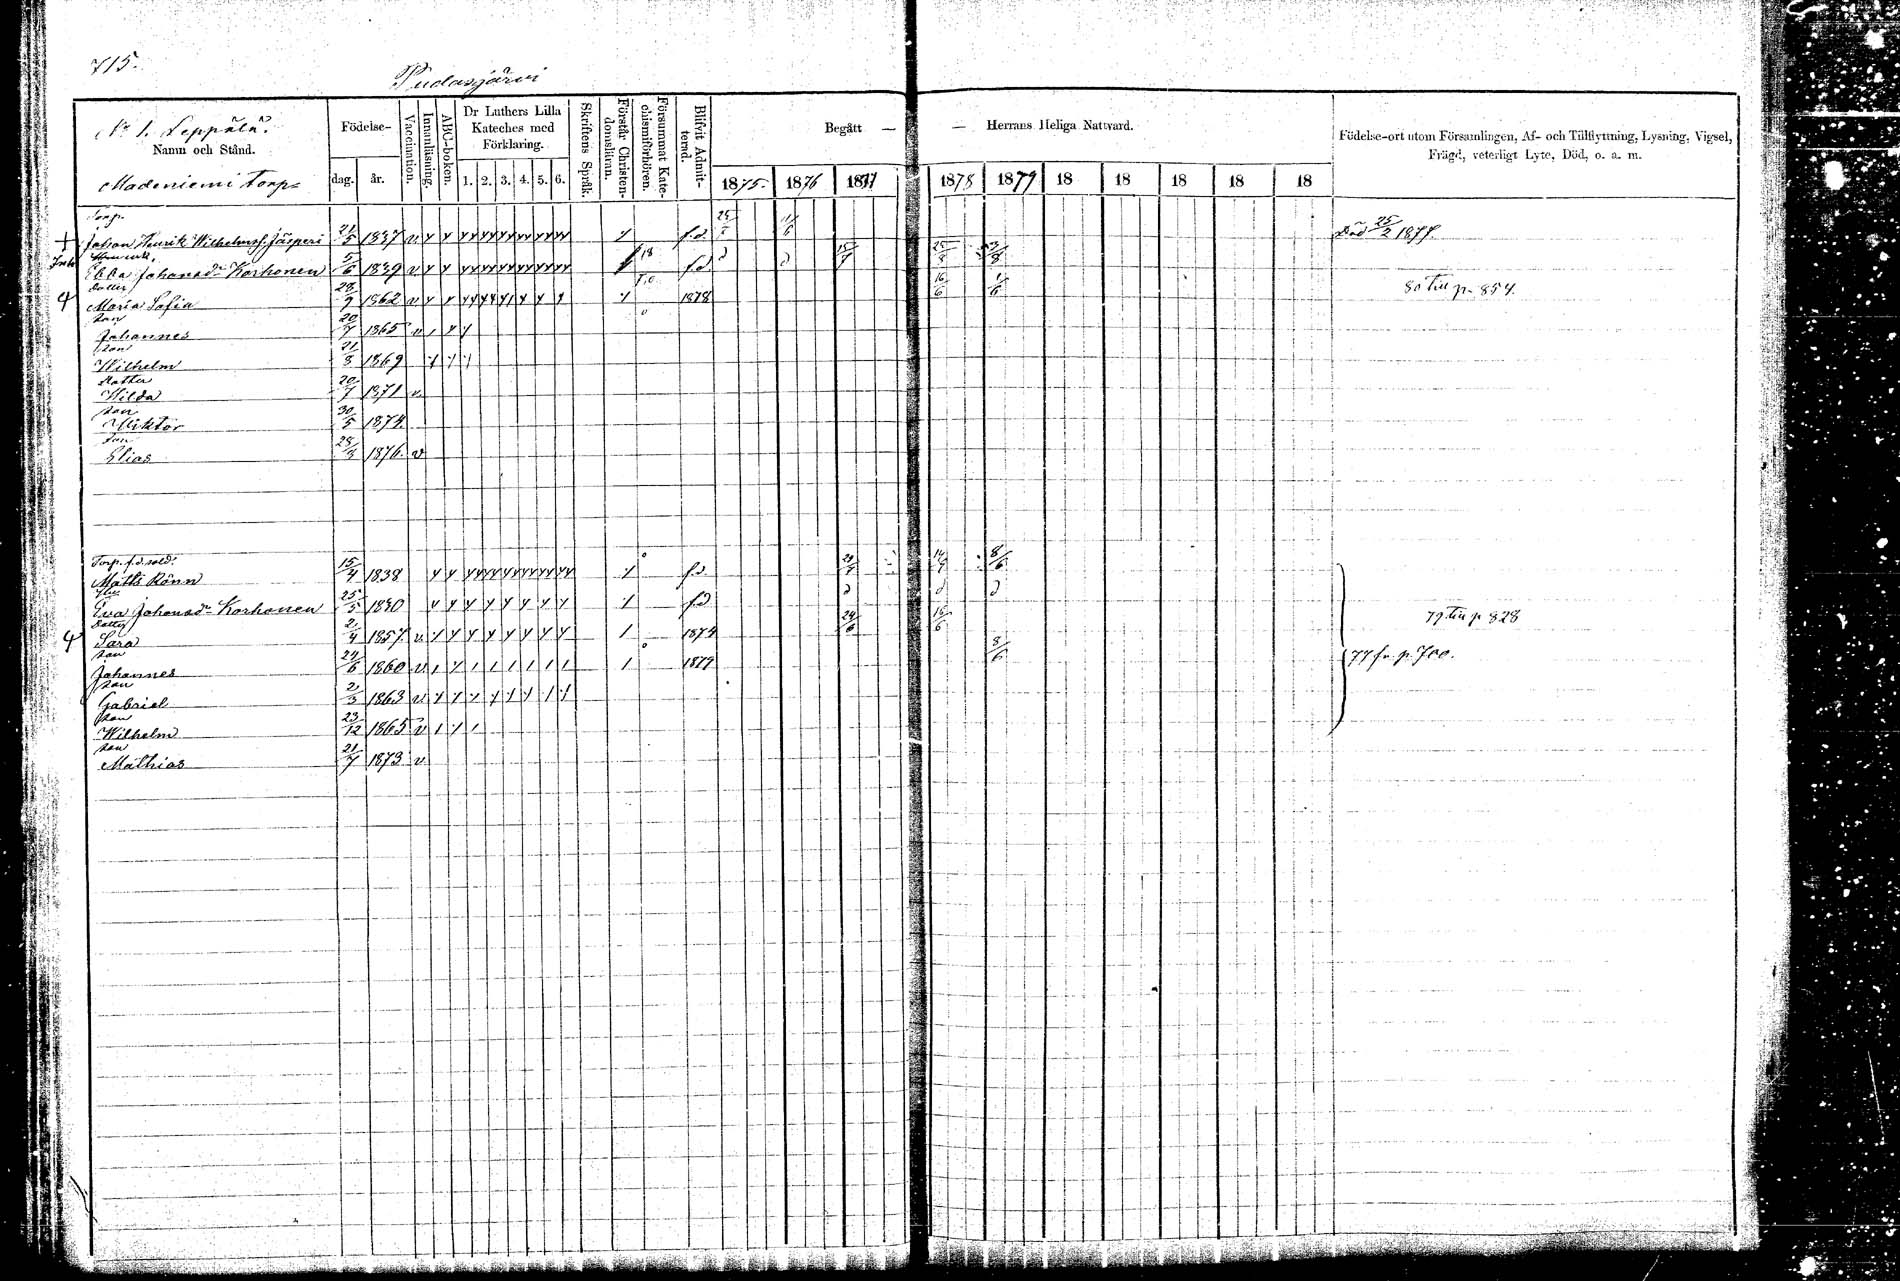 715.
Pudasjärvi
No 1. Leppälä.
Namn och Stånd.
Madeniemi Torp
Födelse-
dag. år.
Vaccination.
Innanläsning.
ABC-boken.
Dr Luthers Lilla Kateches med Förklaring.
1. 2. 3. 4. 5. 6.
Skriftens Språk.
Förstår Christendomsläran.
Försummat Katechismiförhören.
Blifvit Admitterad.
Begått — — Herrans Heliga Nattvard.
1875. 1876 1877 1878 1879 18 18 18 18 18
Födelse-ort utom Församlingen, Af- och Tillflyttning, Lysning, Vigsel, Frägd, veterligt Lyte, Död, o. a. m.
Torp.
+ Johan Henrik Wilhelmsf. Jäsperi 21/5 1837 v f.d. 1/6 Död 25/2 1877.
Ebba Johansdr Korhonen 5/6 1839 v 18 f.d
Dotter
Maria Sofia 28/9 1862 v 1878 16/6 1/6 80 till p. 854.
son
Johannes 20/7 1865 v
son
Wilhelm 21/8 1869
Dotter
Hilda 20/7 1871 v
son
Wiktor 30/5 1874
son
Elias 28/3 1876 v
Torp. f.d. sold.
Matts Rönn 15/4 1838 f.d. 8/6
Eva Johansdr Korhonen 25/5 1830 f.d
Dotter
Sara 2/4 1857 v 1874 24/6 16/6 79 till p 828
son
Johannes 24/6 1860 v 1879 8/6 77 fr. p. 700.
son
Gabriel 2/3 1863 v
son
Wilhelm 23/12 1865 v
son
Mathias 21/7 1873 v